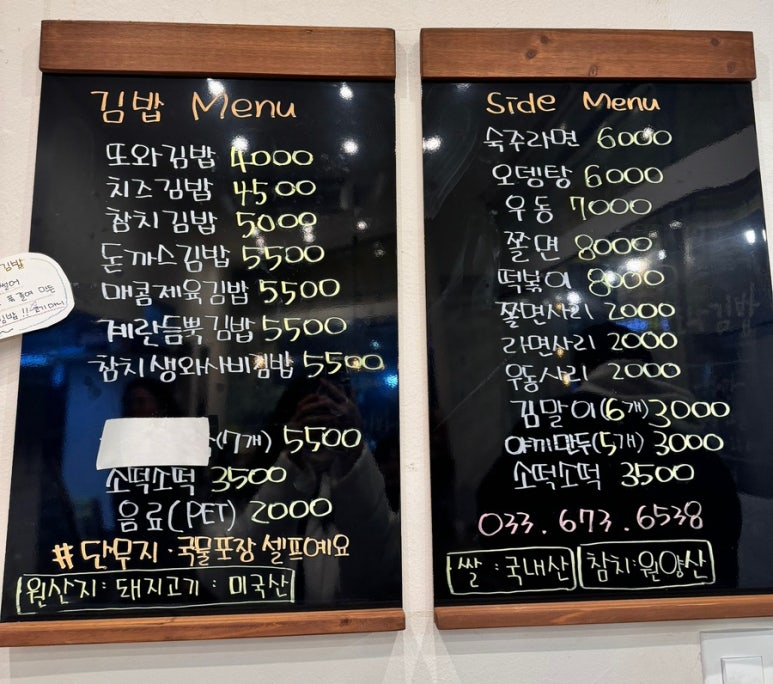 김밥 Menu
또와김밥 4000
치즈김밥 4500
참치김밥 5000
돈까스김밥 5500
매콤제육김밥 5500
계란듬뿍김밥 5500
참치생와사비김밥 5500
(7개) 5500
소떡소떡 3500
음료(PET) 2000
#단무지·국물포장 셀프예요
원산지: 돼지고기 : 미국산
김밥
Side Menu
숙주라면 6000
오뎅탕 6000
우동 7000
쫄면 8000
떡볶이 8000
쫄면사리 2000
라면사리 2000
우동사리 2000
김말이(6개) 3000
야끼만두(5개) 3000
소떡소떡 3500
033.673.6538
쌀 : 국내산
참치:원양산